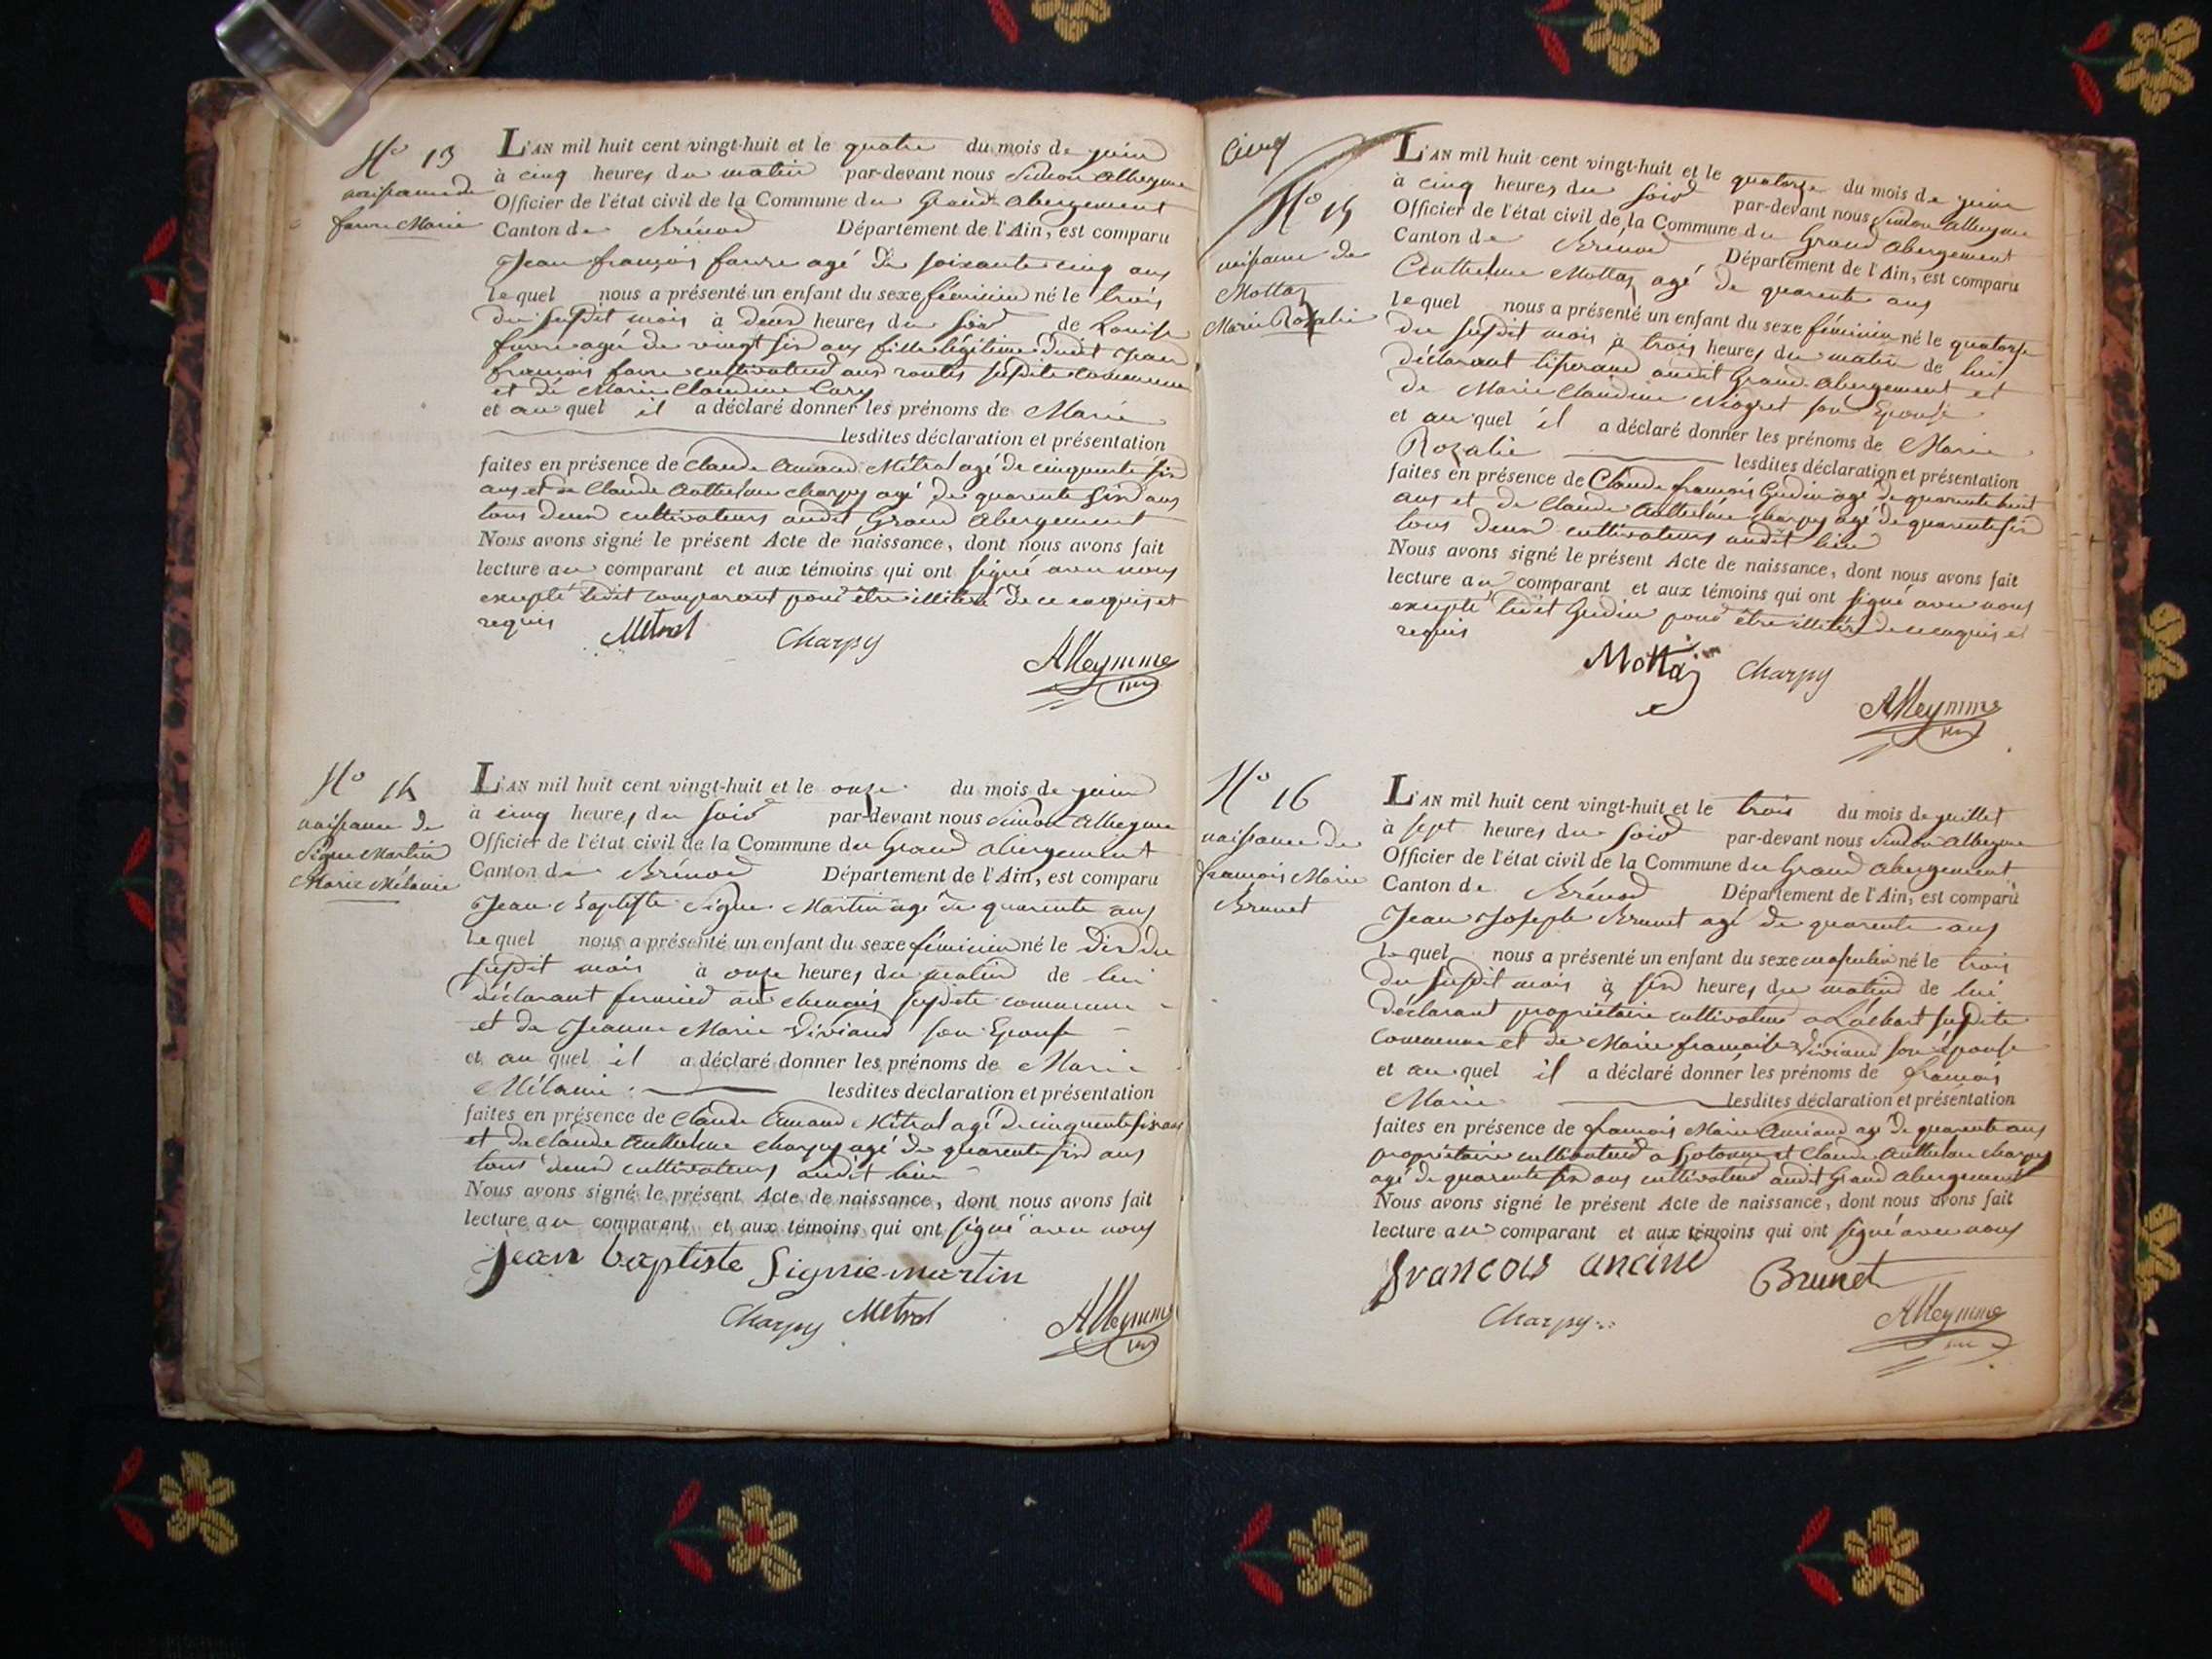 N.o 13
naissance de
favre Marie
L'AN mil huit cent vingt-huit et le quatre du mois de juin
à cinq heures du matin par-devant nous Simon Alleyme
Officier de l'état civil de la Commune du Grand abergement
Canton de Brénod Département de l'Ain, est comparu
Jean françois favre agé de soixante cinq ans
lequel nous a présenté un enfant du sexe féminin né le trois
du susdit mois à deux heures du soir de Louise
favre agée de vingt six ans fille légitime dudit Jean
françois favre cultivateur aux routes susdite commune
et de Marie Claudine
et au quel il a déclaré donner les prénoms de Marie
lesdites déclaration et présentation
faites en présence de Claude Métral agé de cinquante six
ans et de Claude Anthelme Charpy agé de quarente six ans
tous deux cultivateurs audit Grand Abergement
Nous avons signé le présent Acte de naissance, dont nous avons fait
lecture au comparant et aux témoins qui ont signé avec nous
excepté ledit comparant pour être illitéré de ce enquis et
requis
Métral Charpy
Alleymme
N.o 14
naissance de
Signe Martin
Marie Mélanie
L'AN mil huit cent vingt-huit et le onze du mois de juin
à cinq heures du soir par-devant nous Simon Alleyme
Officier de l'état civil de la Commune du Grand abergement
Canton de Brénod Département de l'Ain, est comparu
Jean Baptiste Signe Martin agé de quarente ans
lequel nous a présenté un enfant du sexe féminin né le dix du
susdit mois à onze heures du matin de lui
déclarant fermier susdite commune
et de Jeanne Marie Viviand son Epouse
et au quel il a déclaré donner les prénoms de Marie
Mélanie lesdites déclaration et présentation
faites en présence de Claude Métral agé de cinquante six ans
et de Claude Anthelme Charpy agé de quarente six ans
tous deux cultivateurs audit lieu
Nous avons signé le présent Acte de naissance, dont nous avons fait
lecture au comparant et aux témoins qui ont signé avec nous
Jean baptiste Signie-martin
Charpy Métral
Alleymme
Cinq
N.o 15
naissance de
Mottaz
Marie Rozalie
L'AN mil huit cent vingt-huit et le quatorze du mois de juin
à cinq heures du soir par-devant nous Simon Alleyme
Officier de l'état civil de la Commune du Grand abergement
Canton de Brénod Département de l'Ain, est comparu
Anthelme Mottaz agé de quarente ans
lequel nous a présenté un enfant du sexe féminin né le quatorze
du susdit mois à trois heures du matin de lui
déclarant tisserand audit Grand-abergement et
de Marie Claudine Niogret son Epouse
et au quel il a déclaré donner les prénoms de Marie
Rozalie lesdites déclaration et présentation
faites en présence de Claude françois Gudin agé de quarente huit
ans et de Claude Anthelme Charpy agé de quarente six
tous deux cultivateurs audit lieu
Nous avons signé le présent Acte de naissance, dont nous avons fait
lecture au comparant et aux témoins qui ont signé avec nous
excepté ledit Gudin pour être illitéré de ce enquis et
requis
Mottaz Charpy
Alleymme
N.o 16
naissance de
françois Marie
Brunet
L'AN mil huit cent vingt-huit et le trois du mois de juillet
à sept heures du soir par-devant nous Simon Alleyme
Officier de l'état civil de la Commune du Grand abergement
Canton de Brénod Département de l'Ain, est comparu
Jean Joseph Brunet agé de quarente ans
lequel nous a présenté un enfant du sexe masculin né le trois
du susdit mois à six heures du matin de lui
déclarant propriétaire cultivateur a susdite
commune et de Marie françoise Viviand son épouse
et au quel il a déclaré donner les prénoms de françois
Marie lesdites déclaration et présentation
faites en présence de françois Marie agé de quarente ans
propriétaire cultivateur a et Claude Anthelme Charpy
agé de quarente six ans cultivateur audit Grand abergement
Nous avons signé le présent Acte de naissance, dont nous avons fait
lecture au comparant et aux témoins qui ont signé avec nous
francois Brunet
Charpy
Alleymme